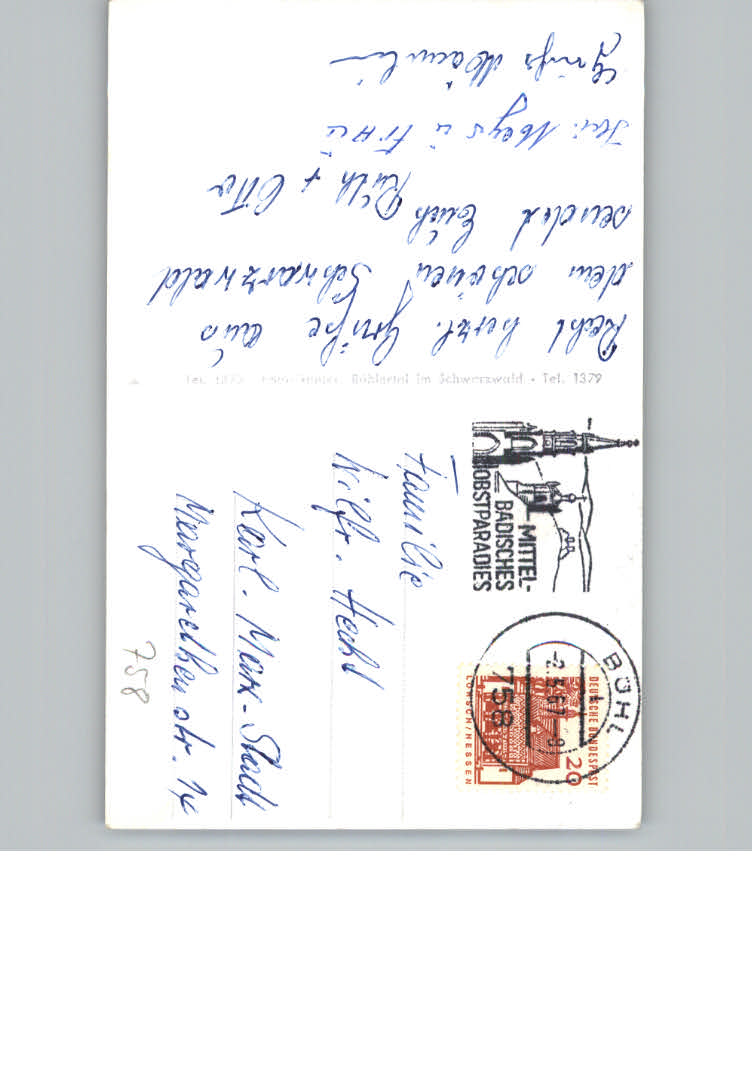 Recht herzl. Grüße aus
dem schönen Schwarzwald
sendet Euch
Ruth + Otto
u Frau
Gruß
Bühlertal im Schwarzwald • Tel. 1379
MITTEL-
BADISCHES
OBSTPARADIES
BÜHL
-2.5.67-9
758
DEUTSCHE BUNDESPOST
20
LORSCH/HESSEN
Familie
Wilfr. Hecht
Karl-Marx-Stadt
Margarethenstr. 14
758